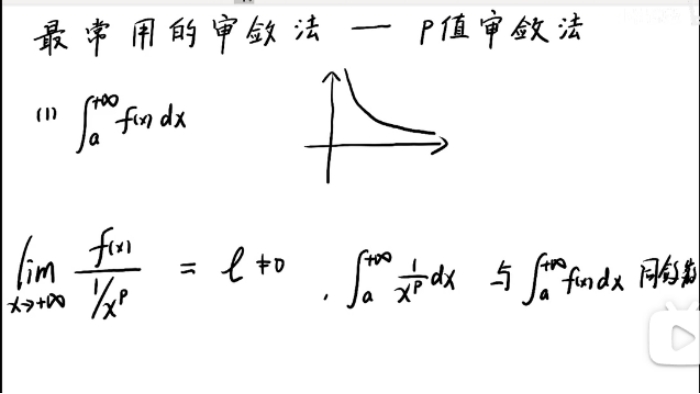 最常用的审敛法 — P值审敛法
(1) ∫_a^{+∞} f(x) dx
lim_{x→+∞} f(x) / (1/x^p) = l ≠ 0 , ∫_a^{+∞} 1/x^p dx 与 ∫_a^{+∞} f(x) dx 同敛散